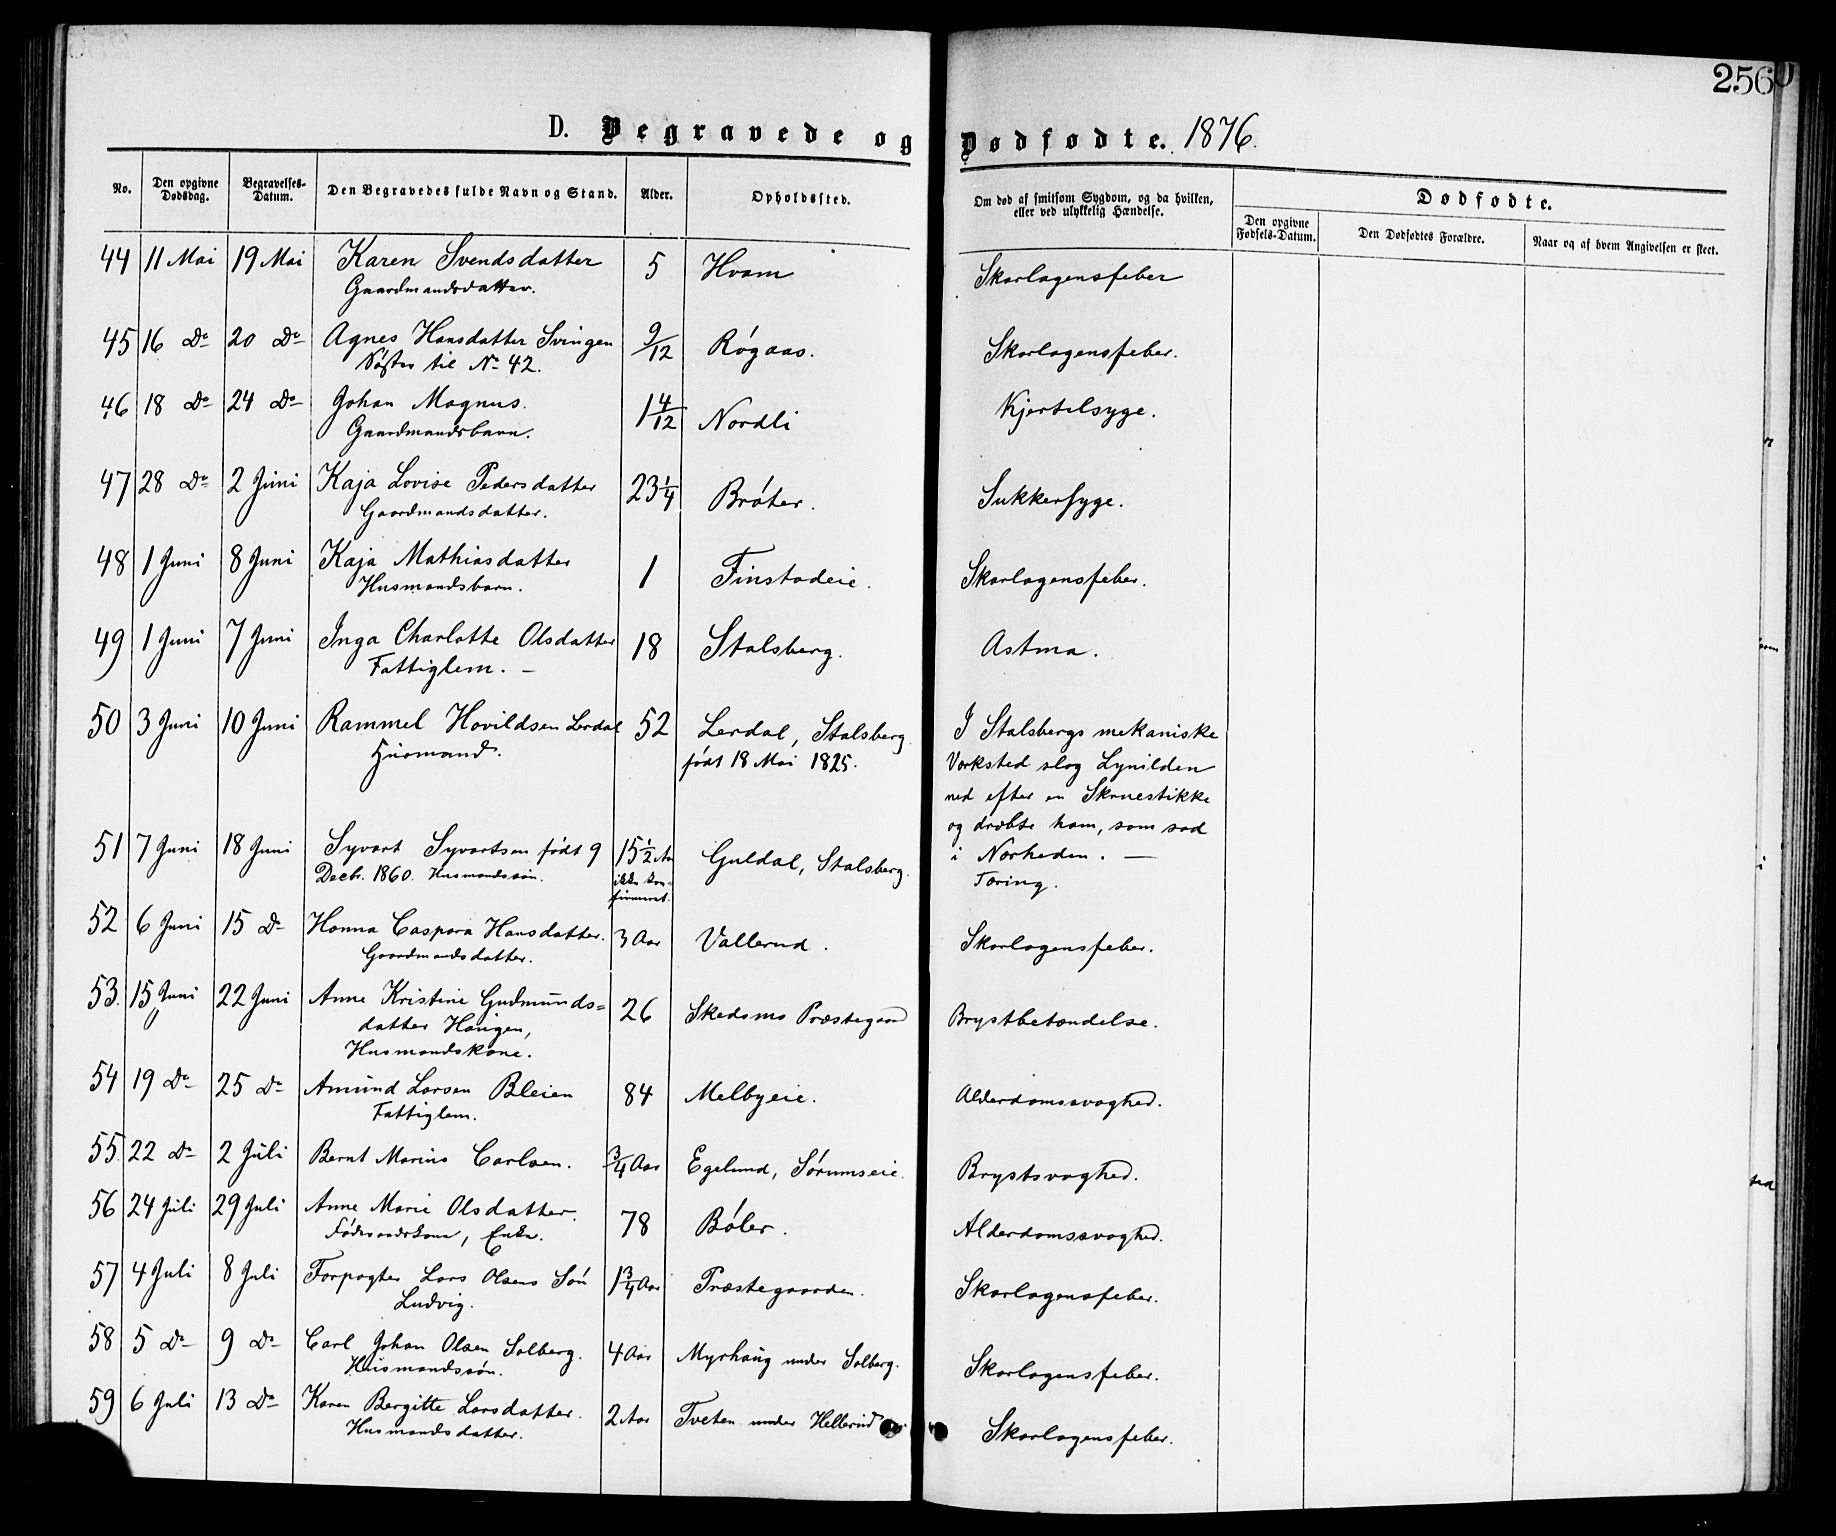 256
D. Begravede og Dødfødte. 1876.
No. Den opgivne Dødsdag. Begravelses-Datum. Den Begravedes fulde Navn og Stand. Alder. Opholdssted. Om død af smitsom Sygdom, og da hvilken, eller ved ulykkelig Hændelse. Dødfødte.
Den opgivne Fødsels-Datum. Den Dødfødtes Forældre. Naar og af hvem Angivelsen er skeet.
44 11 Mai 19 Mai Karen Svendsdatter 5 Hvam Skarlagensfeber
Gaardmandsdatter.
45 16 Do 20 Do Agnes Hansdatter Svingen 9/12 Røgaas. Skarlagensfeber.
Søster til No 42.
46 18 Do 24 Do Johan Magnus. 1 4/12 Nordli Kjertelsyge.
Gaardmandsbarn.
47 28 Do 2 Juni Kaja Lovise Pedersdatter 23 1/4 Bråter. Sukkersyge.
Gaardmandsdatter.
48 1 Juni 8 Juni Kaja Mathiasdatter 1 Finstadeie. Skarlagensfeber.
Husmandsbarn.
49 1 Juni 7 Juni Inga Charlotte Olsdatter 18 Stalsberg. Astma.
Fattiglem. —
50 3 Juni 10 Juni Rammel Hovildsen Lerdal 52 Lerdal, Stalsberg. I Stalsbergs mekaniske
Husmand. født 18 Mai 1825. Værksted slog Lynilden
ned efter en Skruestikke
og dræbte ham, som sad
i Nærheden. —
51 7 Juni 18 Juni Syvart Syvartsen født 9 15 1/2 Aar Guldal, Stalsberg. Tæring.
Decbr. 1860. Husmandssøn. ikke kon-
firmeret.
52 6 Juni 15 Do Hanna Caspara Hansdatter. 3 Aar Vallerud. Skarlagensfeber.
Gaardmandsdatter.
53. 15 Juni 22 Juni Anne Kristine Gudmunds= 26 Skedsmo Præstegaard Brystbetændelse.
datter Haugen,
Husmandskone.
54 19 Do 25 Do Amund Larsen Bleien 84 Melbyeie. Alderdomssvaghed.
Fattiglem.
55. 22 Do 2 Juli Bernt Marius Carlsen. 3/4 Aar Egelund, Sørumseie. Brystsvaghed.
56 24 Juli 29 Juli Anne Marie Olsdatter. 78 Bøler. Alderdomssvaghed.
Enke.
57 4 Juli 8 Juli Forpagter Lars Olsens Søn 1 3/4 Aar Præstegaarden. Skarlagensfeber.
Ludvig.
58 5 Do 9 Do Carl Johan Olsen Solberg. 4 Aar Myrhaug under Solberg. Skarlagensfeber.
Husmandssøn.
59 6 Juli 13 Do Karen Bergitte Larsdatter. 2 Aar Tveten under Hellerud Skarlagensfeber.
Husmandsdatter.